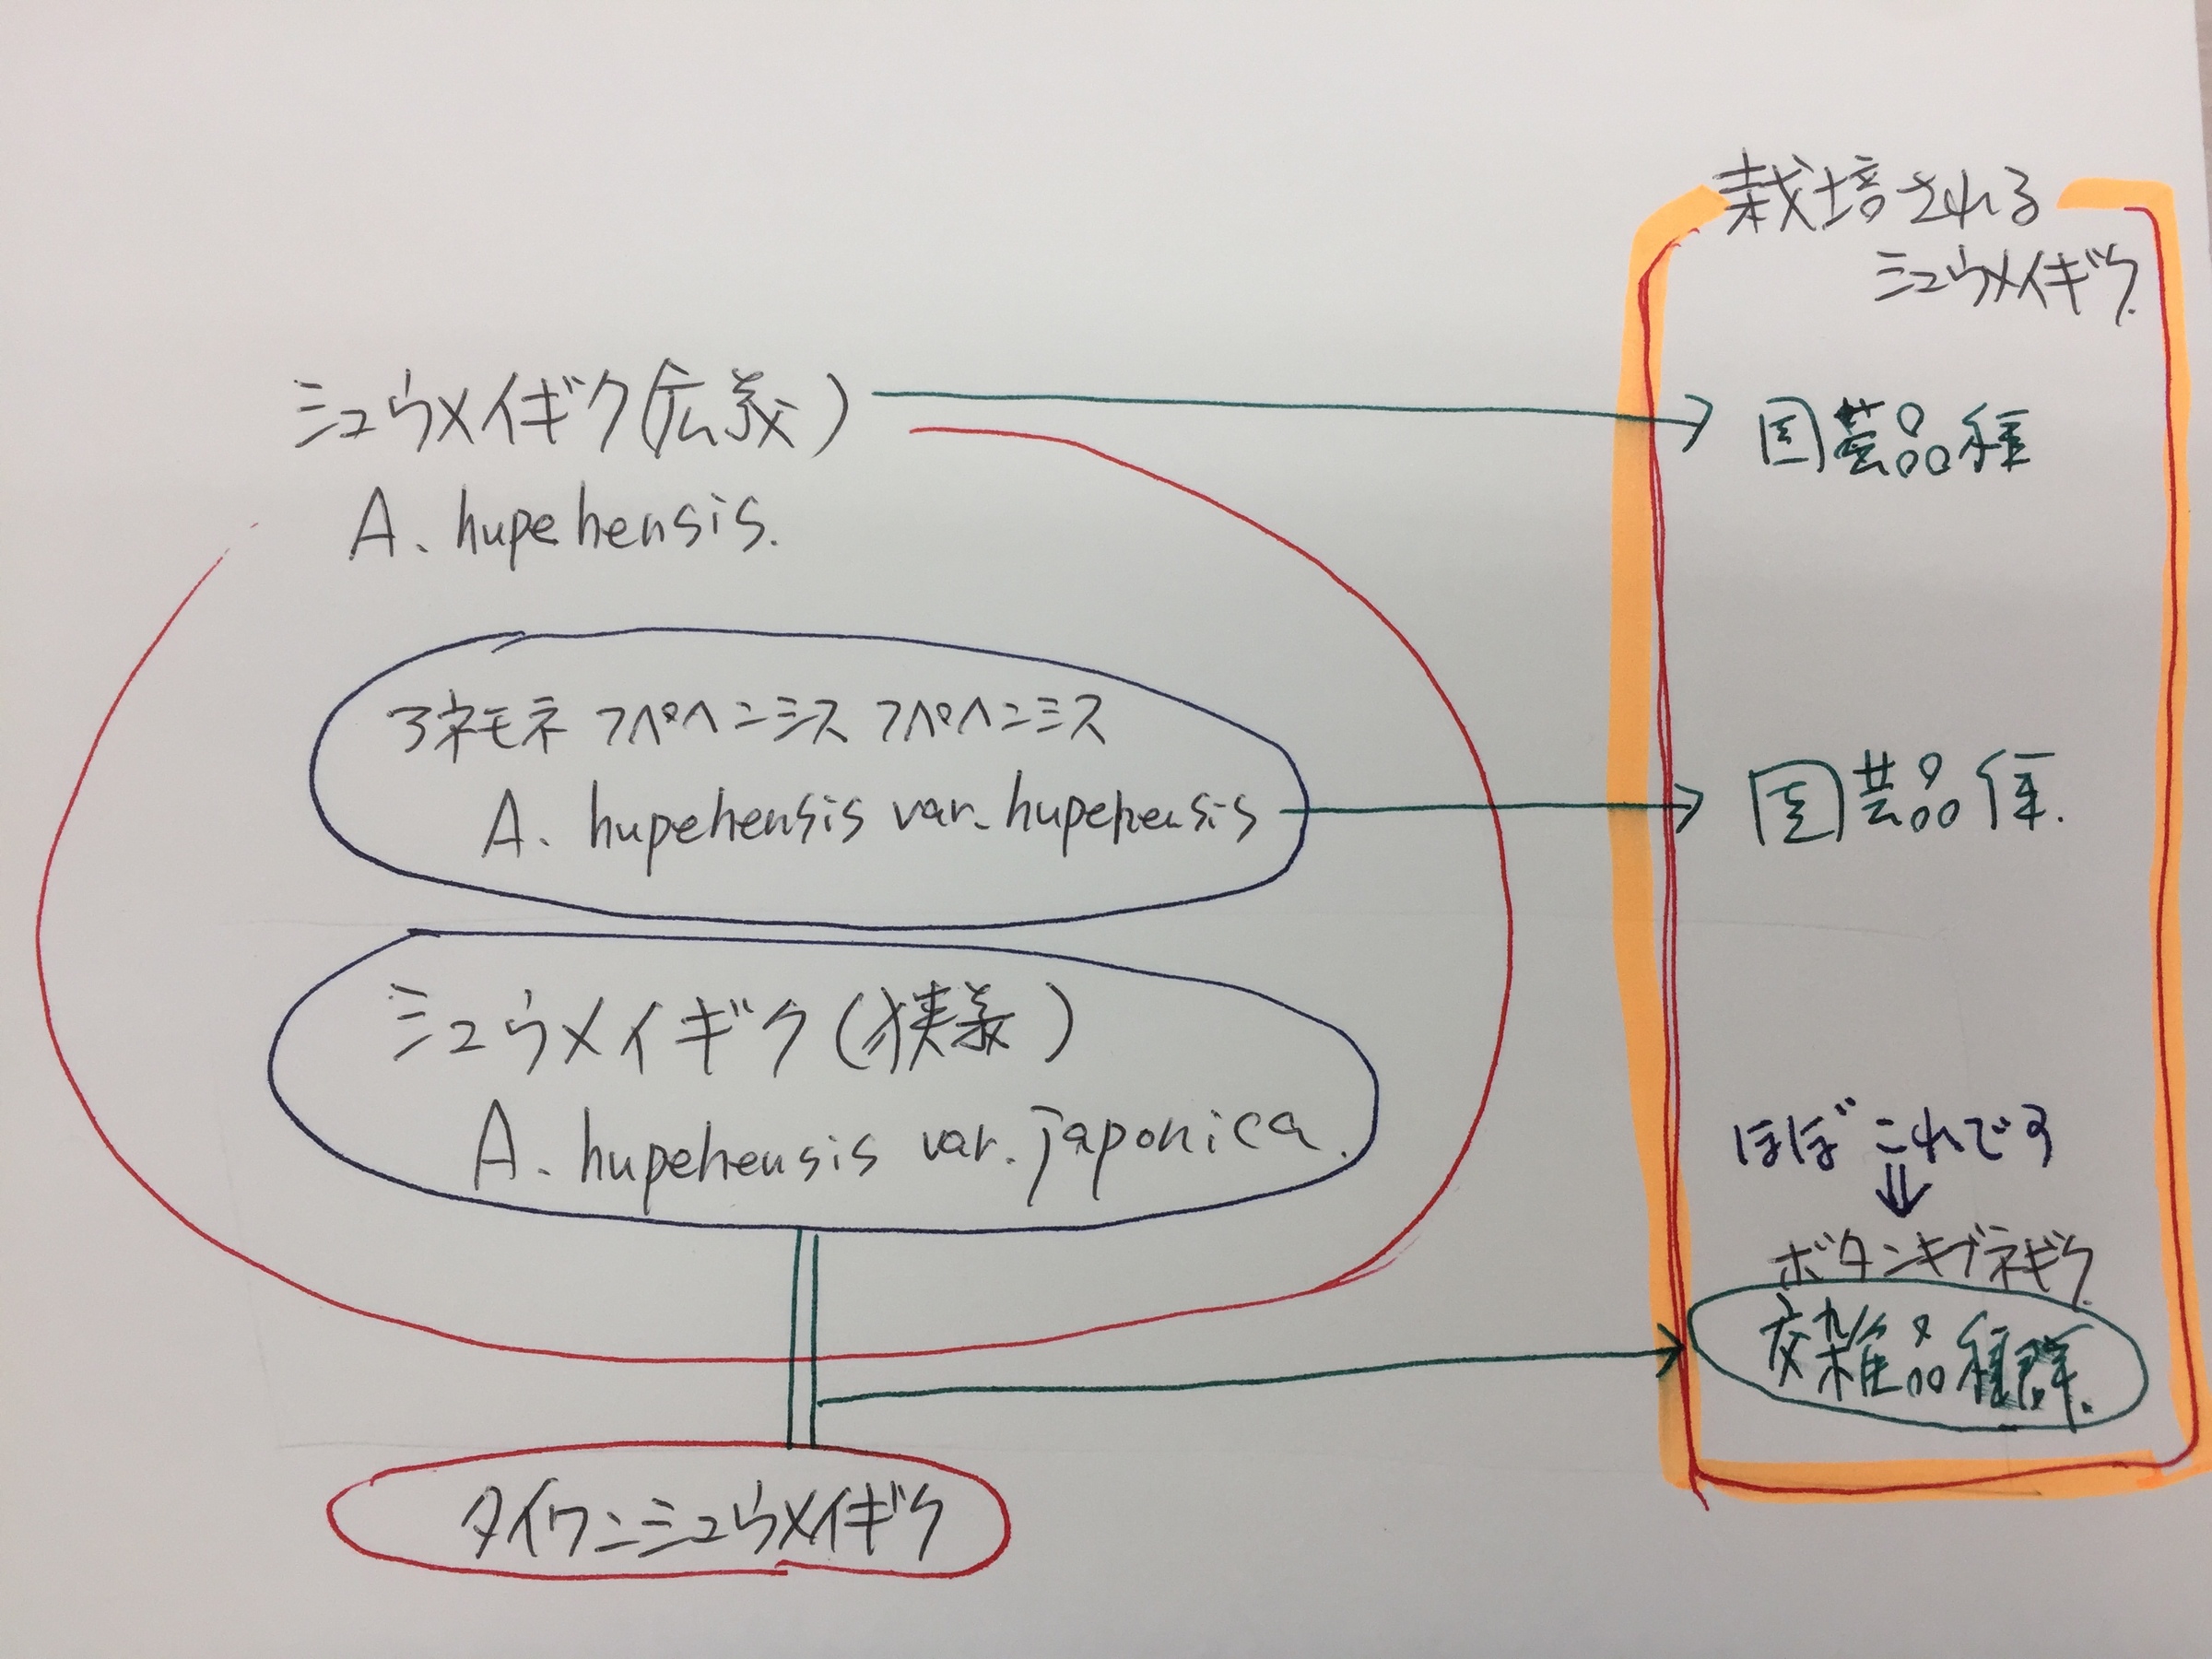 栽培される
シュウメイギク
シュウメイギク(広義)
A. hupehensis.
園芸品種
アネモネ フペヘンシス フペヘンシス
A. hupehensis var. hupehensis
園芸品種.
シュウメイギク(狭義)
A. hupehensis var. japonica.
ほぼこれです
⇓
ボタンキブネギク
交雑品種群.
タイワンシュウメイギク